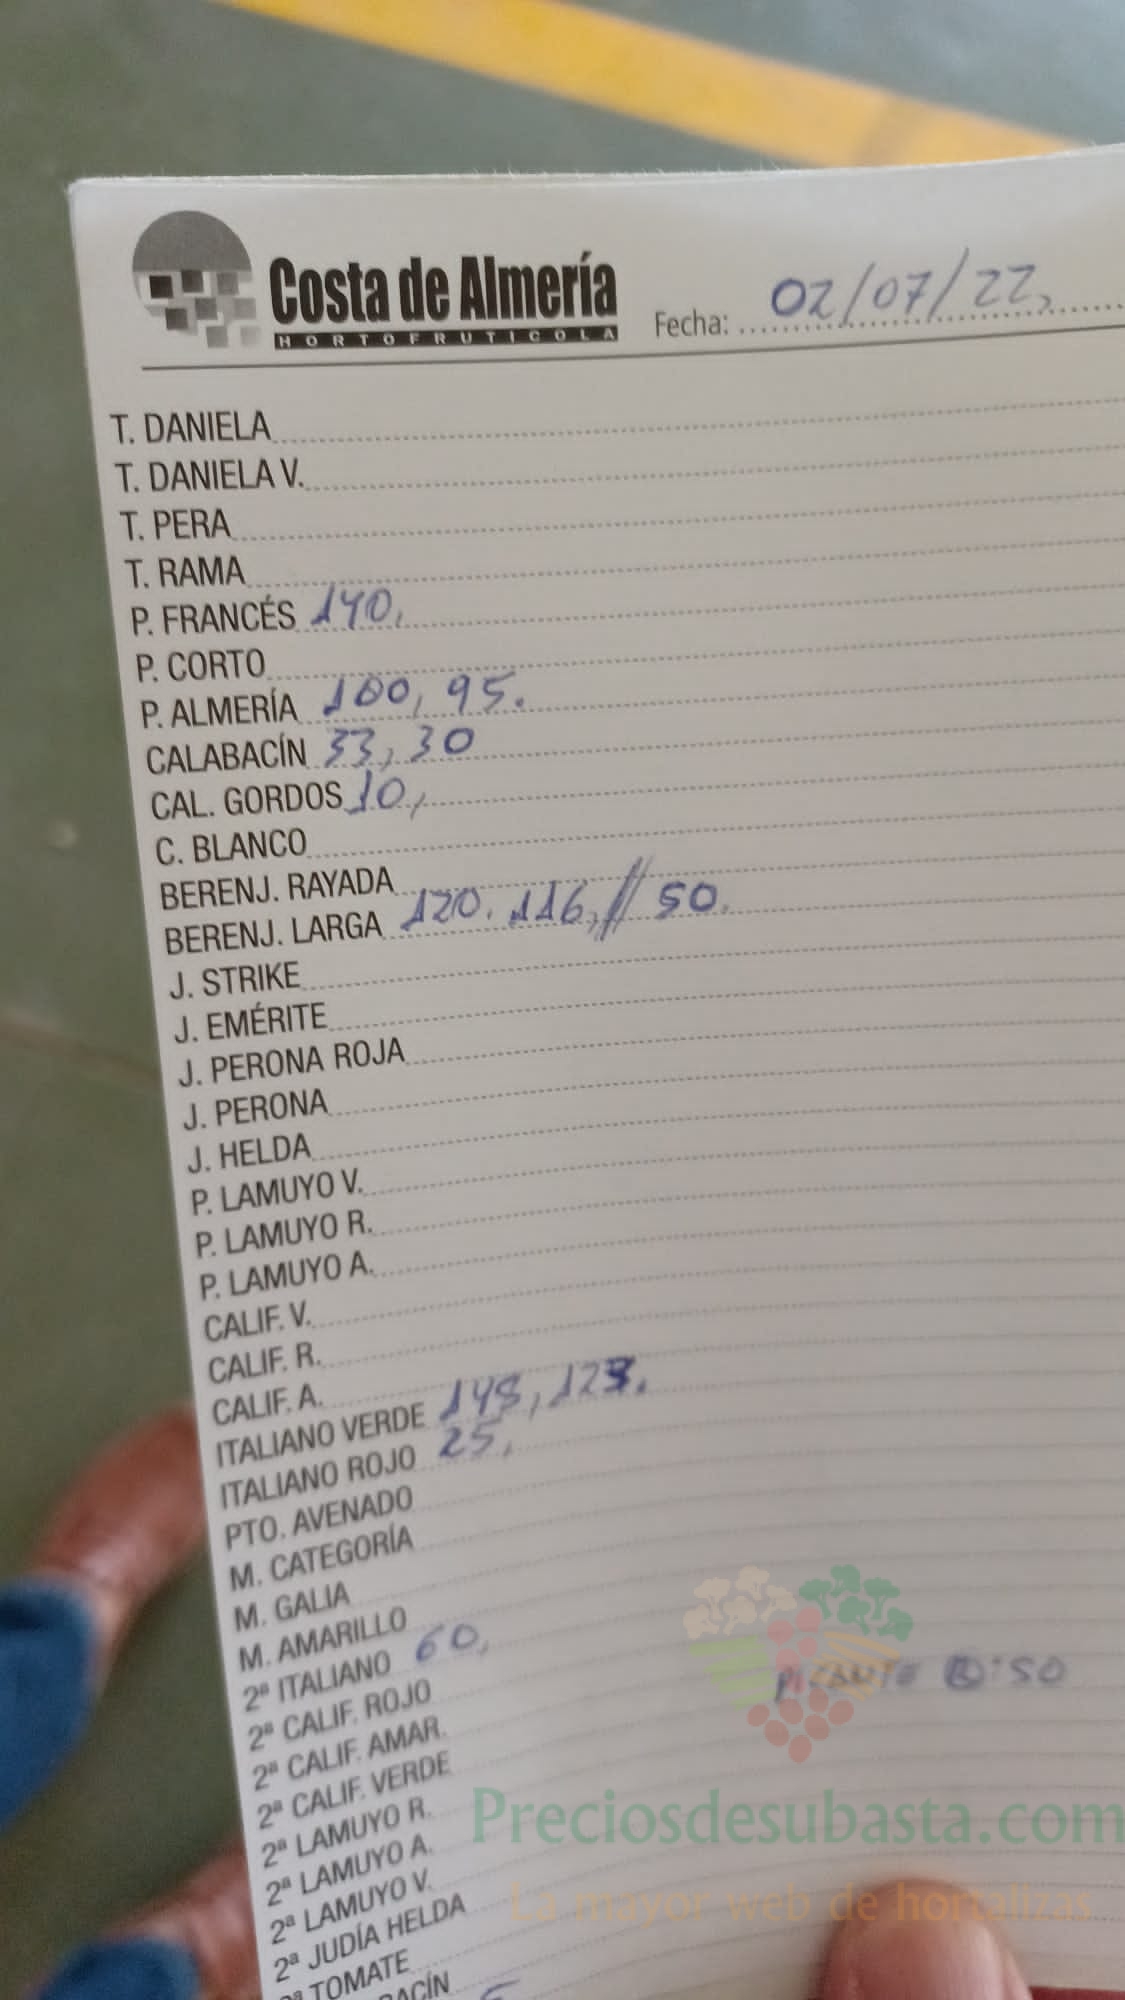 Costa de Almería
HORTOFRUTICOLA
Fecha: 02/07/22,
T. DANIELA
T. DANIELA V.
T. PERA
T. RAMA
P. FRANCÉS 140,
P. CORTO
P. ALMERÍA 100, 95.
CALABACÍN 33, 30
CAL. GORDOS 10,
C. BLANCO
BERENJ. RAYADA
BERENJ. LARGA 120. 116, // 50.
J. STRIKE
J. EMÉRITE
J. PERONA ROJA
J. PERONA
J. HELDA
P. LAMUYO V.
P. LAMUYO R.
P. LAMUYO A.
CALIF. V.
CALIF. R.
CALIF. A.
ITALIANO VERDE 148, 123.
ITALIANO ROJO 25,
PTO. AVENADO
M. CATEGORÍA
M. GALIA
M. AMARILLO
2ª ITALIANO 60,
PICANTE : 50
2ª CALIF. ROJO
2ª CALIF. AMAR.
2ª CALIF. VERDE
2ª LAMUYO R.
2ª LAMUYO A.
2ª LAMUYO V.
2ª JUDÍA HELDA
TOMATE
Preciosdesubasta.com
La mayor web de hortalizas